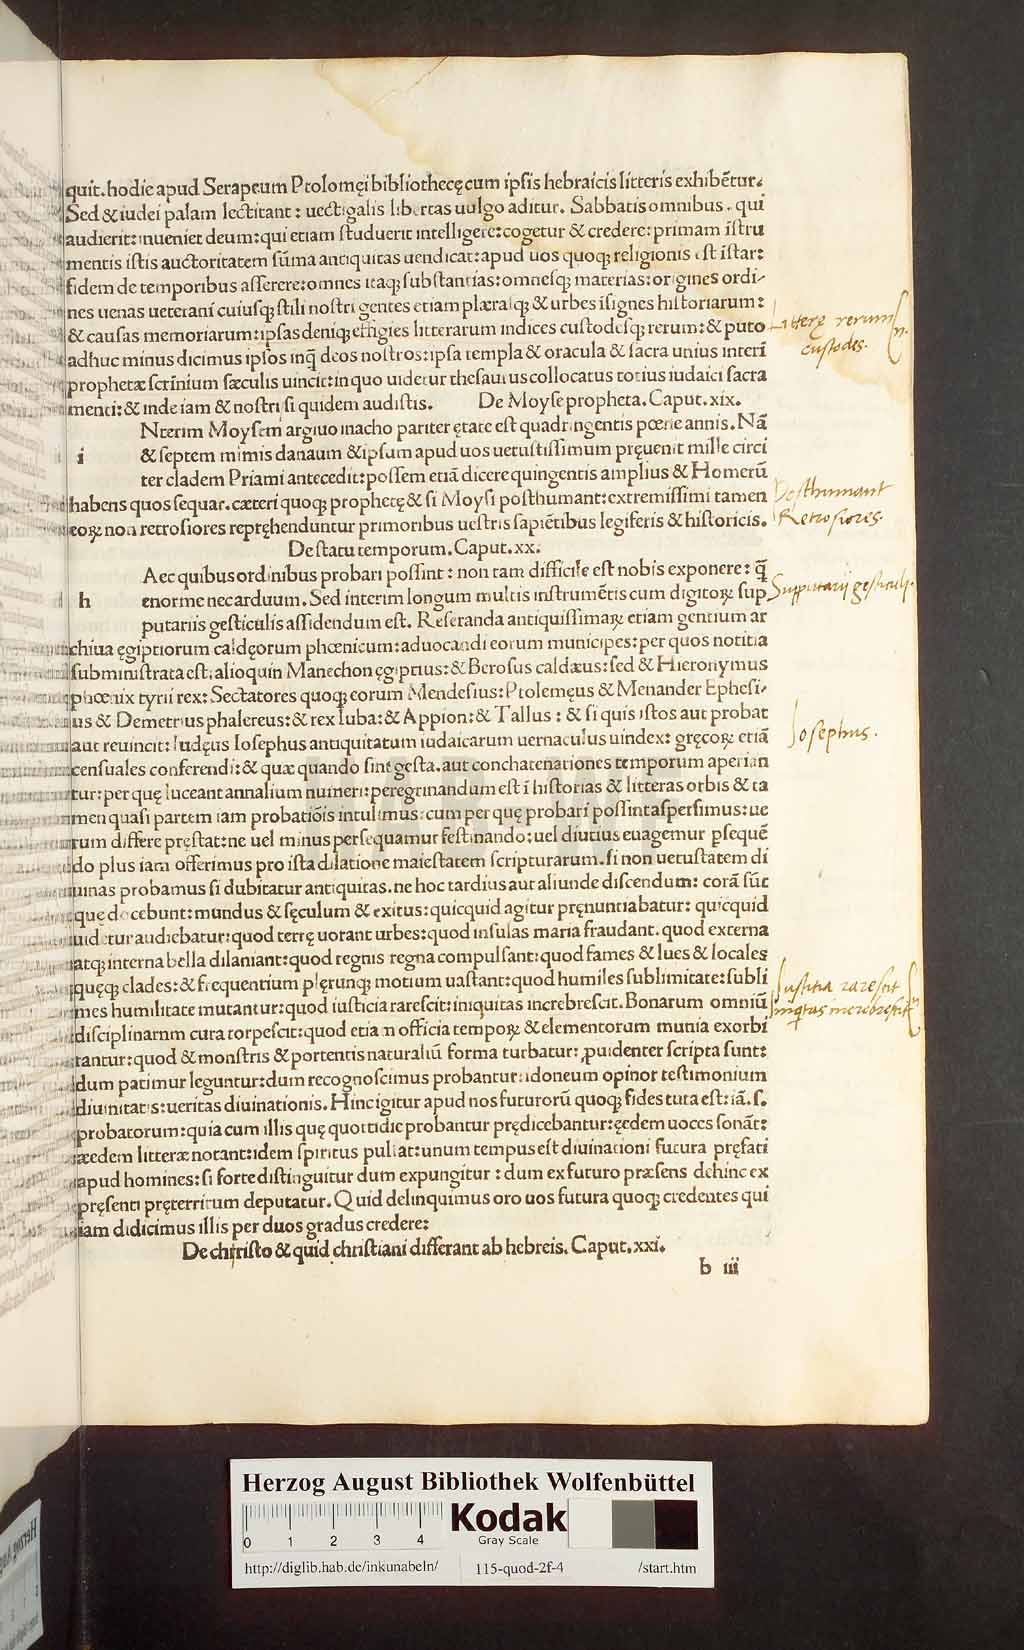 quit. hodie apud Serapeum Ptolomęi bibliothecę cum ipsis hebraicis litteris exhibẽtur.
Sed & iudei palam lectitant: uectigalis libertas uulgo aditur. Sabbatis omnibus. qui
audierit: inueniet deum: qui etiam studuerit intelligere: cogetur & credere: primam ĩstru
mentis istis auctoritatem sũma antiquitas uendicat: apud uos quoqꝫ religionis est ĩstar:
fidem de temporibus asserere: omnes itaqꝫ substantias: omnesqꝫ materias: origines ordi-
nes uenas ueterani cuiusqꝫ stili nostri gentes etiam plærasqꝫ & urbes ĩsignes historiarum:
& causas memoriarum: ipsas deniqꝫ effigies litterarum indices custodesqꝫ rerum: & puto
adhuc minus dicimus ipsos inq̃ deos nostros: ipsa templa & oracula & sacra unius interĩ
prophetæ scrinium sæculis uincit: in quo uidetur thesaurus collocatus totius iudaici sacra
menti: & inde iam & nostri si quidem audistis. De Moyse propheta. Caput. xix.
Nterim Moysem argiuo inacho pariter ętate est quadringentis pœne annis. Nã
i & septem mimis danaum & ipsum apud uos uetustissimum pręuenit mille circi
ter cladem Priami antecedit: possem etiã dicere quingentis amplius & Homerũ
habens quos sequar. cæteri quoqꝫ prophetę & si Moysi posthumant: extremissimi tamen
eoꝝ non retrosiores repręhenduntur primoribus uestris sapiẽtibus legiferis & historicis.
De statu temporum. Caput. xx.
Aec quibus ordinibus probari possint: non tam difficile est nobis exponere: q̃
h enorme nec arduum. Sed interim longum multis instrumẽtis cum digitoꝝ sup
putariis gesticulis assidendum est. Reseranda antiquissimaꝝ etiam gentium ar
chiua ęgiptiorum caldęorum phœnicum: aduocandi eorum municipes: per quos notitia
subministrata est. alioquin Manechon ęgiptius: & Berosus caldæus: sed & Hieronymus
phœnix tyrii rex: Sectatores quoqꝫ eorum Mendesius: Ptolemęus & Menander Ephesi-
us & Demetrius phalereus: & rex Iuba: & Appion: & Tallus: & si quis istos aut probat
aut reuincit: Iudęus Iosephus antiquitatum iudaicarum uernaculus uindex: gręcoꝝ etiã
censuales conferendi: & quæ quando sint gesta. aut conchatenationes temporum aperian
tur: per quę luceant annalium numeri: peregrinandum est ĩ historias & litteras orbis & ta
men quasi partem iam probatiõis intulimus: cum per quę probari possint aspersimus: ue
rum differe pręstat: ne uel minus persequamur festinando: uel diutius euagemur ꝑsequẽ
do plus iam offerimus pro ista dilatione maiestatem scripturarum. si non uetustatem di
uinas probamus si dubitatur antiquitas. ne hoc tardius aut aliunde discendum: corã sũt
quę docebunt: mundus & sęculum & exitus: quicquid agitur pręnuntiabatur: quicquid
uidetur audiebatur: quod terrę uorant urbes: quod insulas maria fraudant. quod externa
atqꝫ interna bella dilaniant: quod regnis regna compulsant: quod fames & lues & locales
quęqꝫ clades: & frequentium plęrunqꝫ motium uastant: quod humiles sublimitate: subli
mes humilitate mutantur: quod iusticia rarescit: iniquitas increbrescit. Bonarum omniũ
disciplinarnm cura torpescit: quod etiam officia tempoꝝ & elementorum munia exorbi
tantur: quod & monstris & portentis naturaliũ forma turbatur: puidenter scripta sunt:
dum patimur leguntur: dum recognoscimus probantur: idoneum opinor testimonium
diuinitatis: ueritas diuinationis. Hinc igitur apud nos futurorũ quoqꝫ fides tuta est: iã. s.
probatorum: quia cum illis quę quottidie probantur prędicebantur: ęedem uoces sonãt:
æedem litteræ notant: idem spiritus pulsat: unum tempus est diuinationi futura pręfati
apud homines: si forte distinguitur dum expungitur: dum ex futuro præsens dehinc ex
pręsenti pręterritum deputatur. Quid delinquimus oro uos futura quoqꝫ credentes qui
iam didicimus illis per duos gradus credere:
De christo & quid christiani differant ab hebreis. Caput. xxi.
b iii
Litterę rerum
custodes.
Posthumant
Retrosiores.
Supputarij gesticuli.
Iosephus.
Iustitia rarescit
iniqitas increbrescit
Herzog August Bibliothek Wolfenbüttel
0 1 2 3 4
Kodak
Gray Scale
http://diglib.hab.de/inkunabeln/ 115-quod-2f-4 /start.htm